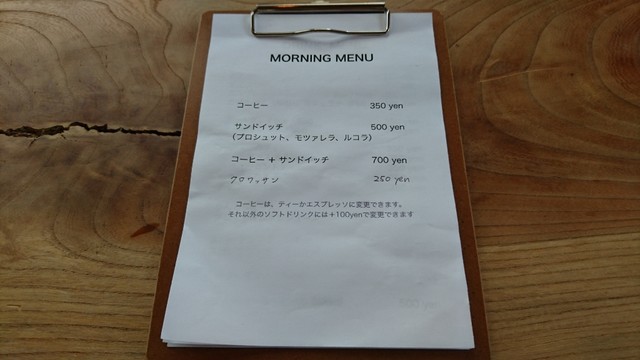 MORNING MENU
コーヒー 350 yen
サンドイッチ 500 yen
(プロシュット、モツァレラ、ルコラ)
コーヒー + サンドイッチ 700 yen
クロワッサン 250 yen
コーヒーは、ティーかエスプレッソに変更できます。
それ以外のソフトドリンクには+100yenで変更できます